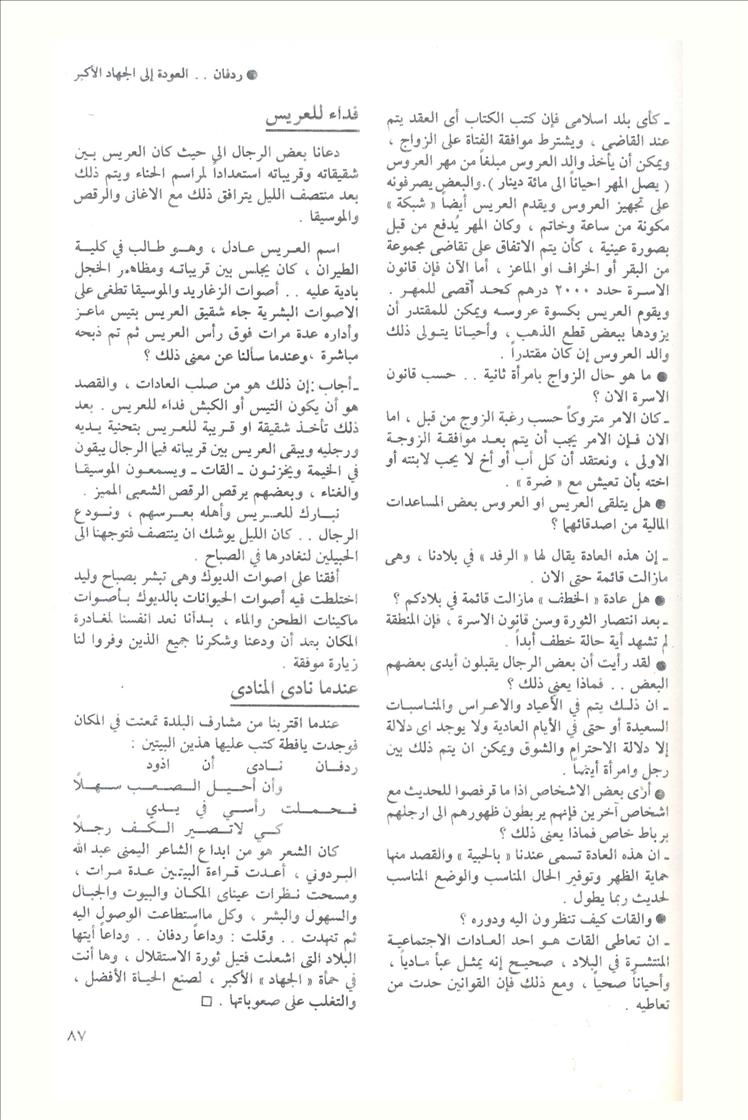 ● ردفان . . العودة إلى الجهاد الأكبر
ـ كأى بلد اسلامى فإن كتب الكتاب أى العقد يتم
عند القاضى ، ويشترط موافقة الفتاة على الزواج ،
ويمكن أن يأخذ والد العروس مبلغاً من مهر العروس
( يصل المهر احياناً الى مائة دينار ) . والبعض يصرفونه
على تجهيز العروس ويقدم العريس أيضاً « شبكة »
مكونة من ساعة وخاتم ، وكان المهر يُدفع من قبل
بصورة عينية ، كأن يتم الاتفاق على تقاضى مجموعة
من البقر أو الخراف او الماعز ، أما الآن فإن قانون
الاسرة حدد ٢٠٠٠ درهم كحد أقصى للمهر .
ويقوم العريس بكسوة عروسه ويمكن للمقتدر أن
يزودها ببعض قطع الذهب ، وأحيانا يتولى ذلك
والد العروس إن كان مقتدراً .
● ما هو حال الزواج بامرأة ثانية . . حسب قانون
الاسرة الان ؟
ـ كان الامر متروكاً حسب رغبة الزوج من قبل ، اما
الان فإن الامر يجب أن يتم بعد موافقة الزوجة
الاولى ، ونعتقد أن كل أب أو أخ لا يحب لابنته أو
اخته بأن تعيش مع « ضرة » .
● هل يتلقى العريس او العروس بعض المساعدات
المالية من اصدقائهما ؟
ـ إن هذه العادة يقال لها « الرفد » في بلادنا ، وهى
مازالت قائمة حتى الان .
● هل عادة « الخطف » مازالت قائمة في بلادكم ؟
ـ بعد انتصار الثورة وسن قانون الاسرة ، فإن المنطقة
لم تشهد أية حالة خطف أبداً .
● لقد رأيت أن بعض الرجال يقبلون أيدى بعضهم
البعض . . فماذا يعني ذلك ؟
ـ ان ذلك يتم في الأعياد والاعراس والمناسبات
السعيدة أو حتى في الأيام العادية ولا يوجد اى دلالة
إلا دلالة الاحترام والشوق ويمكن ان يتم ذلك بين
رجل وامرأة أيضاً .
● أرى بعض الاشخاص اذا ما قرفصوا للحديث مع
اشخاص آخرين فإنهم يربطون ظهورهم الى ارجلهم
برباط خاص فماذا يعنى ذلك ؟
ـ ان هذه العادة تسمى عندنا « بالحبية » والقصد منها
حماية الظهر وتوفير الحال المناسب والوضع المناسب
لحديث ربما يطول .
● والقات كيف تنظرون اليه ودوره ؟
ـ ان تعاطى القات هو احد العادات الاجتماعية
المنتشرة في البلاد ، صحيح إنه يمثل عبأ مادياً ،
وأحياناً صحياً ، ومع ذلك فإن القوانين حدت من
تعاطيه .
فداء للعريس
دعانا بعض الرجال الى حيث كان العريس بين
شقيقاته وقريباته استعداداً لمراسم الحناء ويتم ذلك
بعد منتصف الليل يترافق ذلك مع الاغانى والرقص
والموسيقا .
اسم العريس عادل ، وهو طالب في كلية
الطيران ، كان يجلس بين قريباته ومظاهر الخجل
بادية عليه . . أصوات الزغاريد والموسيقا تطغى على
الاصوات البشرية جاء شقيق العريس بتيس ماعز
وأداره عدة مرات فوق رأس العريس ثم تم ذبحه
مباشرة ، وعندما سألنا عن معنى ذلك ؟
ـ أجاب : إن ذلك هو من صلب العادات ، والقصد
هو أن يكون التيس أو الكبش فداء للعريس . بعد
ذلك تأخذ شقيقة او قريبة للعريس بتحنية يديه
ورجليه ويبقى العريس بين قريباته فيما الرجال يبقون
في الخيمة ويخزنون ـ القات ـ ويسمعون الموسيقا
والغناء ، وبعضهم يرقص الرقص الشعبى المميز .
نبارك للعريس وأهله بعرسهم ، ونودع
الرجال . . كان الليل يوشك ان ينتصف فتوجهنا الى
الحبيلين لنغادرها في الصباح .
أفقنا على اصوات الديوك وهى تبشر بصباح وليد
اختلطت فيه أصوات الحيوانات بالديوك بأصوات
ماكينات الطحن والماء ، بدأنا نعد انفسنا لمغادرة
المكان بعد أن ودعنا وشكرنا جميع الذين وفروا لنا
زيارة موفقة .
عندما نادى المنادى
عندما اقتربنا من مشارف البلدة تمعنت في المكان
فوجدت يافطة كتب عليها هذين البيتين :
ردفان نادى أن اذود
وأن أحيل الصعب سهلاً
فحملت رأسي في يدي
كي لاتصير الكف رجلاً
كان الشعر هو من ابداع الشاعر اليمنى عبد الله
البردوني ، أعدت قراءة البيتين عدة مرات ،
ومسحت نظرات عيناى المكان والبيوت والجبال
والسهول والبشر ، وكل مااستطاعت الوصول اليه
ثم تنهدت . . وقلت : وداعاً ردفان . . وداعاً أيتها
البلاد التى اشعلت فتيل ثورة الاستقلال ، وها أنت
في حمأة « الجهاد » الأكبر ، لصنع الحياة الأفضل ،
والتغلب على صعوباتها . □
٨٧